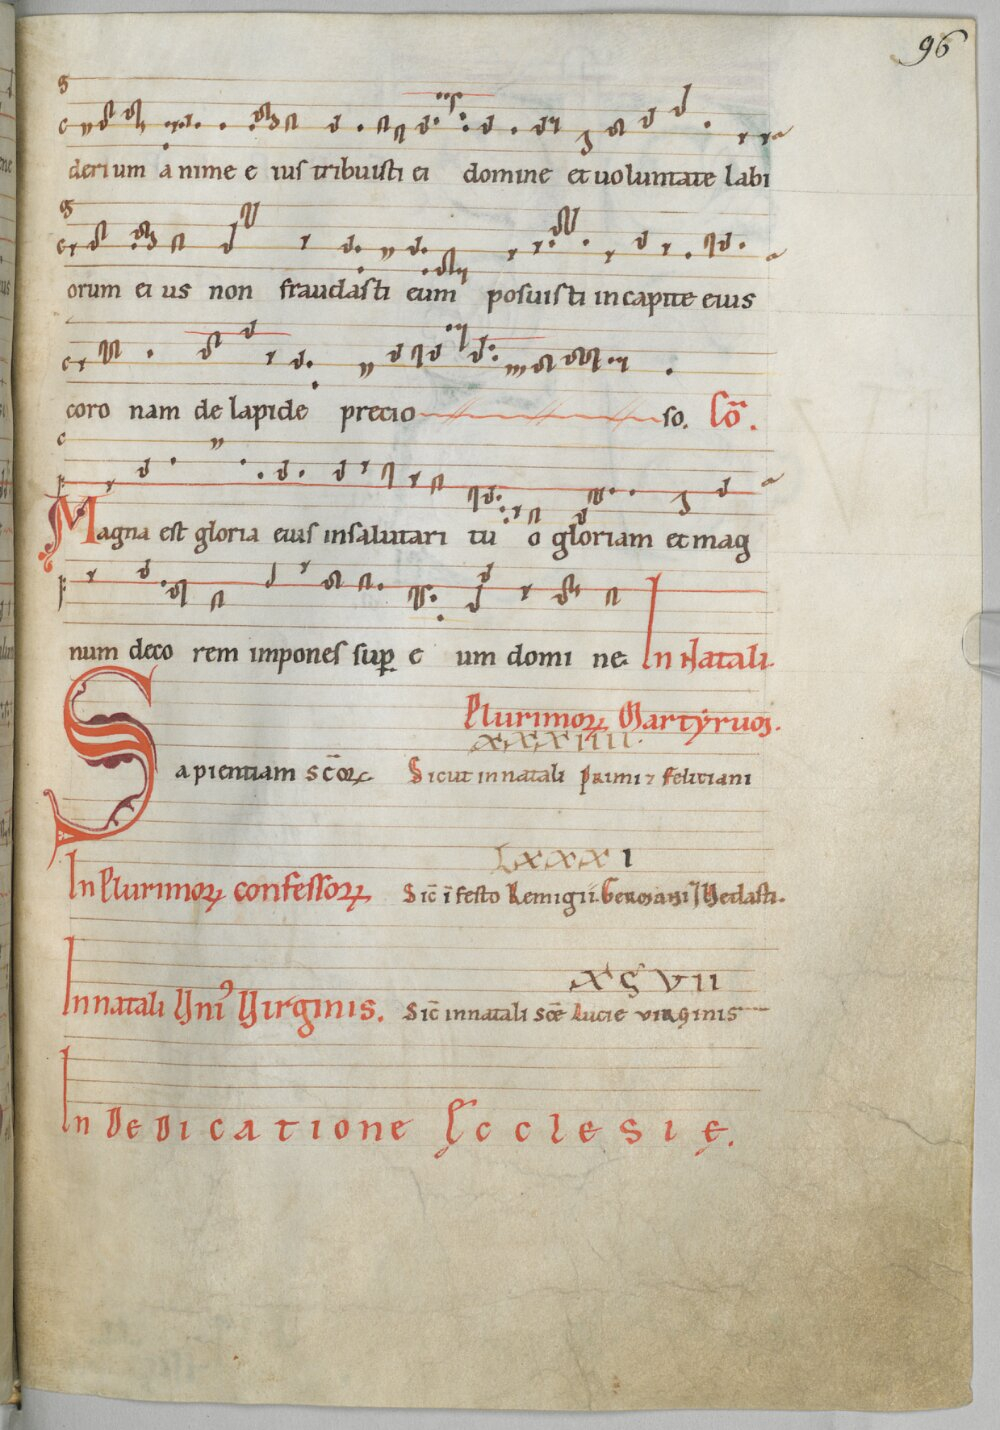 96
derium anime e ius tribuisti ei domine et uoluntate labi
orum ei us non fraudasti eum posuisti in capite eius
coro nam de lapide precio so. Cõ.
Magna est gloria eius in salutari tu o gloriam et mag
num deco rem impones sup e um domi ne. In Natali
Plurimoꝝ Martyrum.
XXXIIII.
Sapientiam sc̄oꝝ Sicut in natali primi ⁊ feliciani
LXXXI
In Plurimoꝝ confessoꝝ Sic̄ ī festo Remigii. Germani Vedasti.
XCVII
In natali Uniꝰ Virginis. Sic̄ in natali sc̄e Lucie virginis
In Dedicatione Ecclesie.